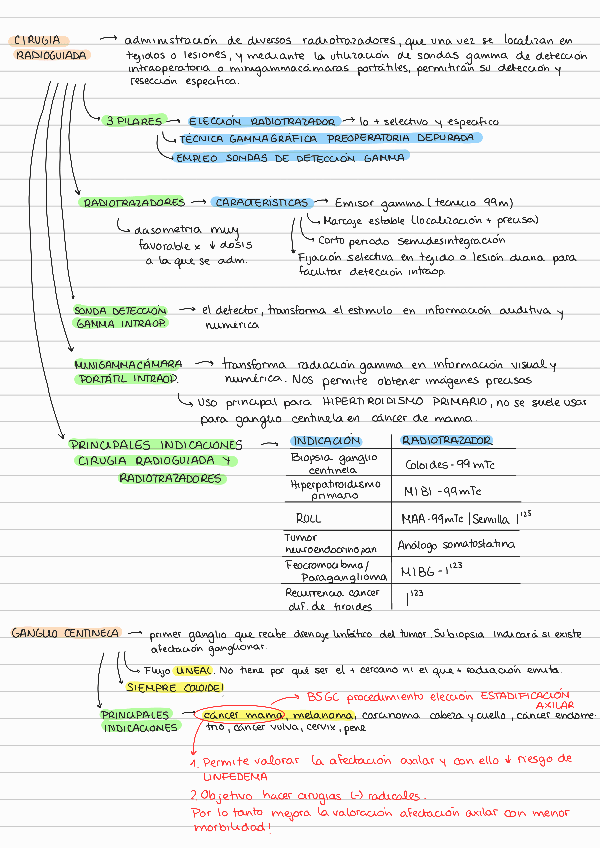 CIRUGIA RADIOGUIADA → administración de diversos radiotrazadores, que una vez se localizan en
tejidos o lesiones, y mediante la utilización de sondas gamma de detección
intraoperatoria o minigammacámaras portátiles, permitirán su detección y
resección específica.
3 PILARES → ELECCIÓN RADIOTRAZADOR → lo + selectivo y específico
TÉCNICA GAMMAGRÁFICA PREOPERATORIA DEPURADA
EMPLEO SONDAS DE DETECCIÓN GAMMA
RADIOTRAZADORES → CARACTERÍSTICAS → Emisor gamma (tecnecio 99m)
Marcaje estable (localización + precisa)
Corto periodo semidesintegración
Fijación selectiva en tejido o lesión diana para
facilitar detección intraop.
dosimetria muy
favorable x ↓ dosis
a la que se adm.
SONDA DETECCIÓN
GAMMA INTRAOP. → el detector, transforma el estímulo en información auditiva y
numérica
MINIGAMMACÁMARA
PORTÁTIL INTRAOP. → transforma radiación gamma en información visual y
numérica. Nos permite obtener imágenes precisas
Uso principal para HIPERTIROIDISMO PRIMARIO, no se suele usar
para ganglio centinela en cáncer de mama.
PRINCIPALES INDICACIONES
CIRUGIA RADIOGUIADA Y
RADIOTRAZADORES →
INDICACIÓN RADIOTRAZADOR
Biopsia ganglio
centinela Coloides-99mTc
Hiperpatiroidismo
primario MIBI-99mTc
ROLL MAA-99mTc | Semilla I¹²⁵
Tumor
neuroendocrino pan Análogo somatostatina
Feocromocitoma/
Paraganglioma MIBG-I¹²³
Recurrencia cáncer
dif. de tiroides I¹²³
GANGLIO CENTINELA → primer ganglio que recibe drenaje linfático del tumor. Su biopsia indicará si existe
afectación ganglionar.
Flujo LINEAL. No tiene por qué ser el + cercano ni el que + radiación emita.
SIEMPRE COLOIDE!
BSGC procedimiento elección ESTADIFICACIÓN
AXILAR
PRINCIPALES
INDICACIONES → cáncer mama, melanoma, carcinoma cabeza y cuello, cáncer endome-
trio, cáncer vulva, cervix, pene
1. Permite valorar la afectación axilar y con ello ↓ riesgo de
LINFEDEMA
2. Objetivo hacer cirugías (-) radicales.
Por lo tanto mejora la valoración afectación axilar con menor
morbilidad!